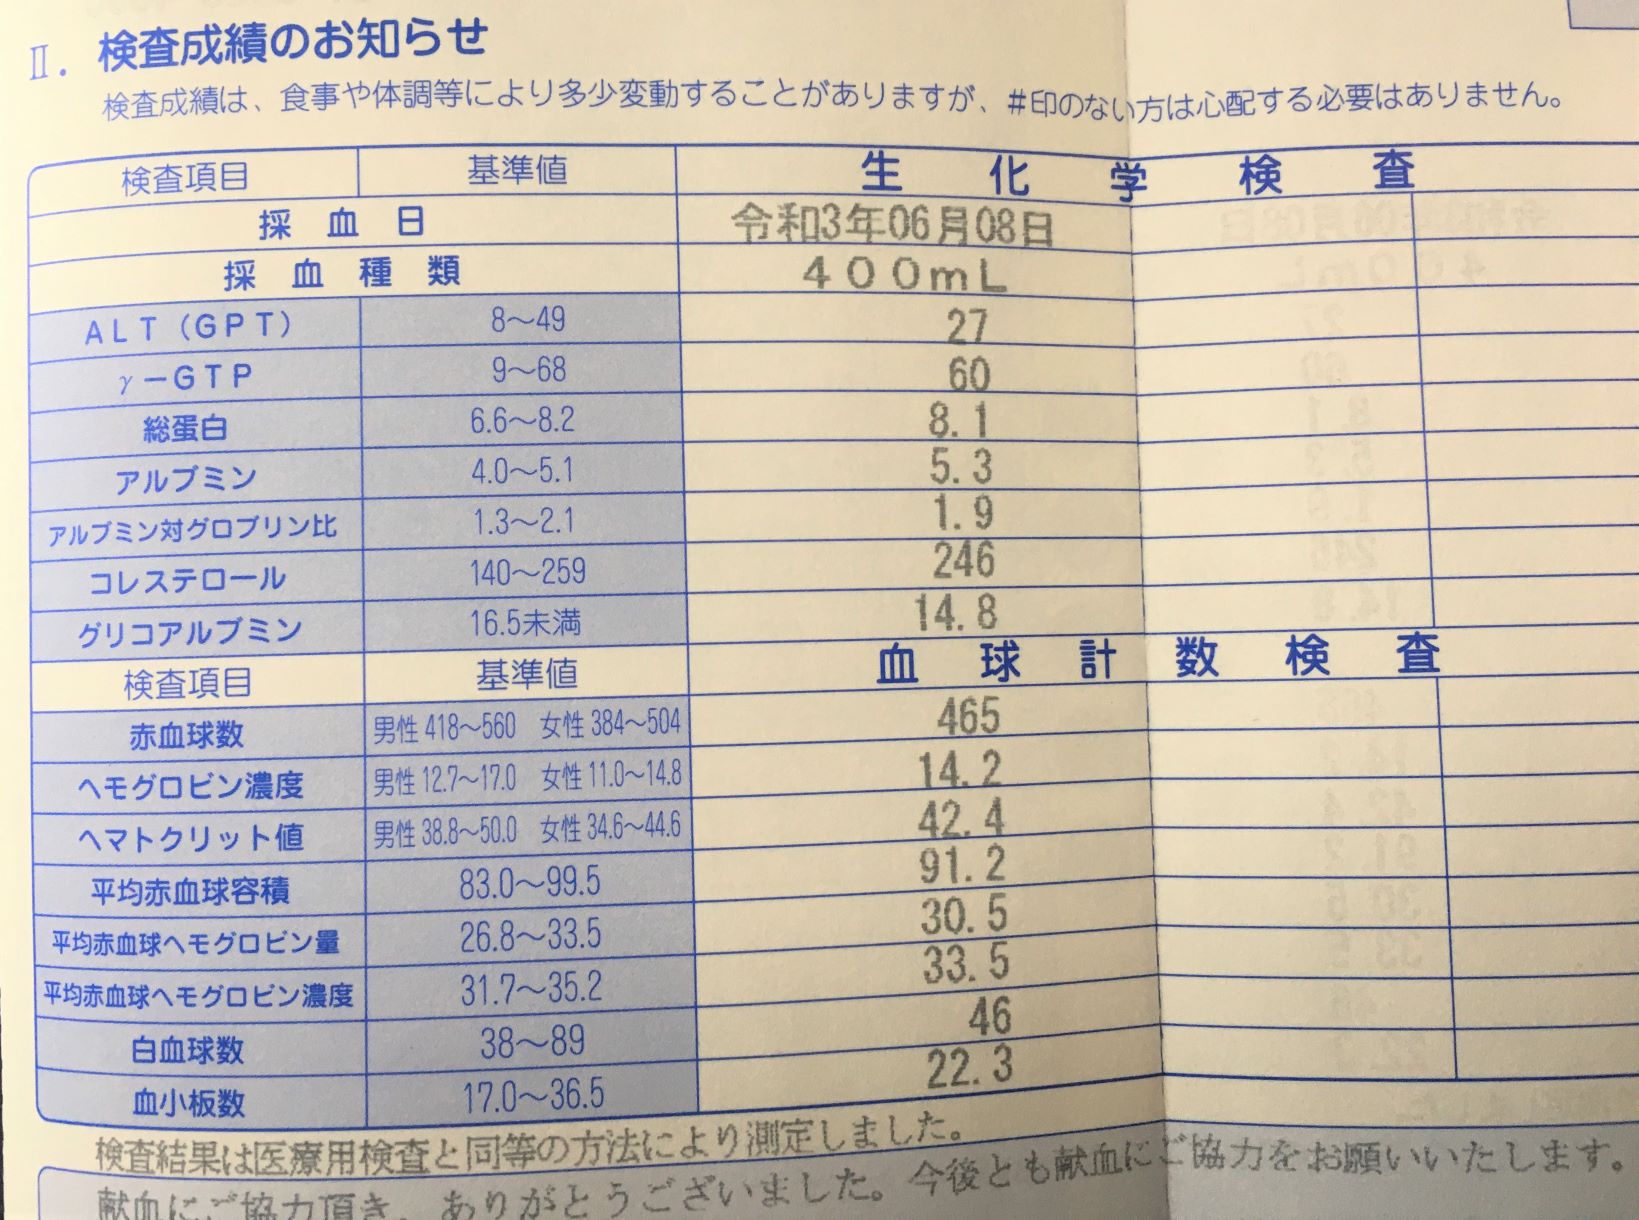 Ⅱ. 検査成績のお知らせ
検査成績は、食事や体調等により多少変動することがありますが、#印のない方は心配する必要はありません。
検査項目 基準値 生化学検査
採血日 令和3年06月08日
採血種類 400mL
ALT(GPT) 8～49 27
γ-GTP 9～68 60
総蛋白 6.6～8.2 8.1
アルブミン 4.0～5.1 5.3
アルブミン対グロブリン比 1.3～2.1 1.9
コレステロール 140～259 246
グリコアルブミン 16.5未満 14.8
検査項目 基準値 血球計数検査
赤血球数 男性 418～560 女性 384～504 465
ヘモグロビン濃度 男性 12.7～17.0 女性 11.0～14.8 14.2
ヘマトクリット値 男性 38.8～50.0 女性 34.6～44.6 42.4
平均赤血球容積 83.0～99.5 91.2
平均赤血球ヘモグロビン量 26.8～33.5 30.5
平均赤血球ヘモグロビン濃度 31.7～35.2 33.5
白血球数 38～89 46
血小板数 17.0～36.5 22.3
検査結果は医療用検査と同等の方法により測定しました。
献血にご協力頂き、ありがとうございました。今後とも献血にご協力をお願いいたします。